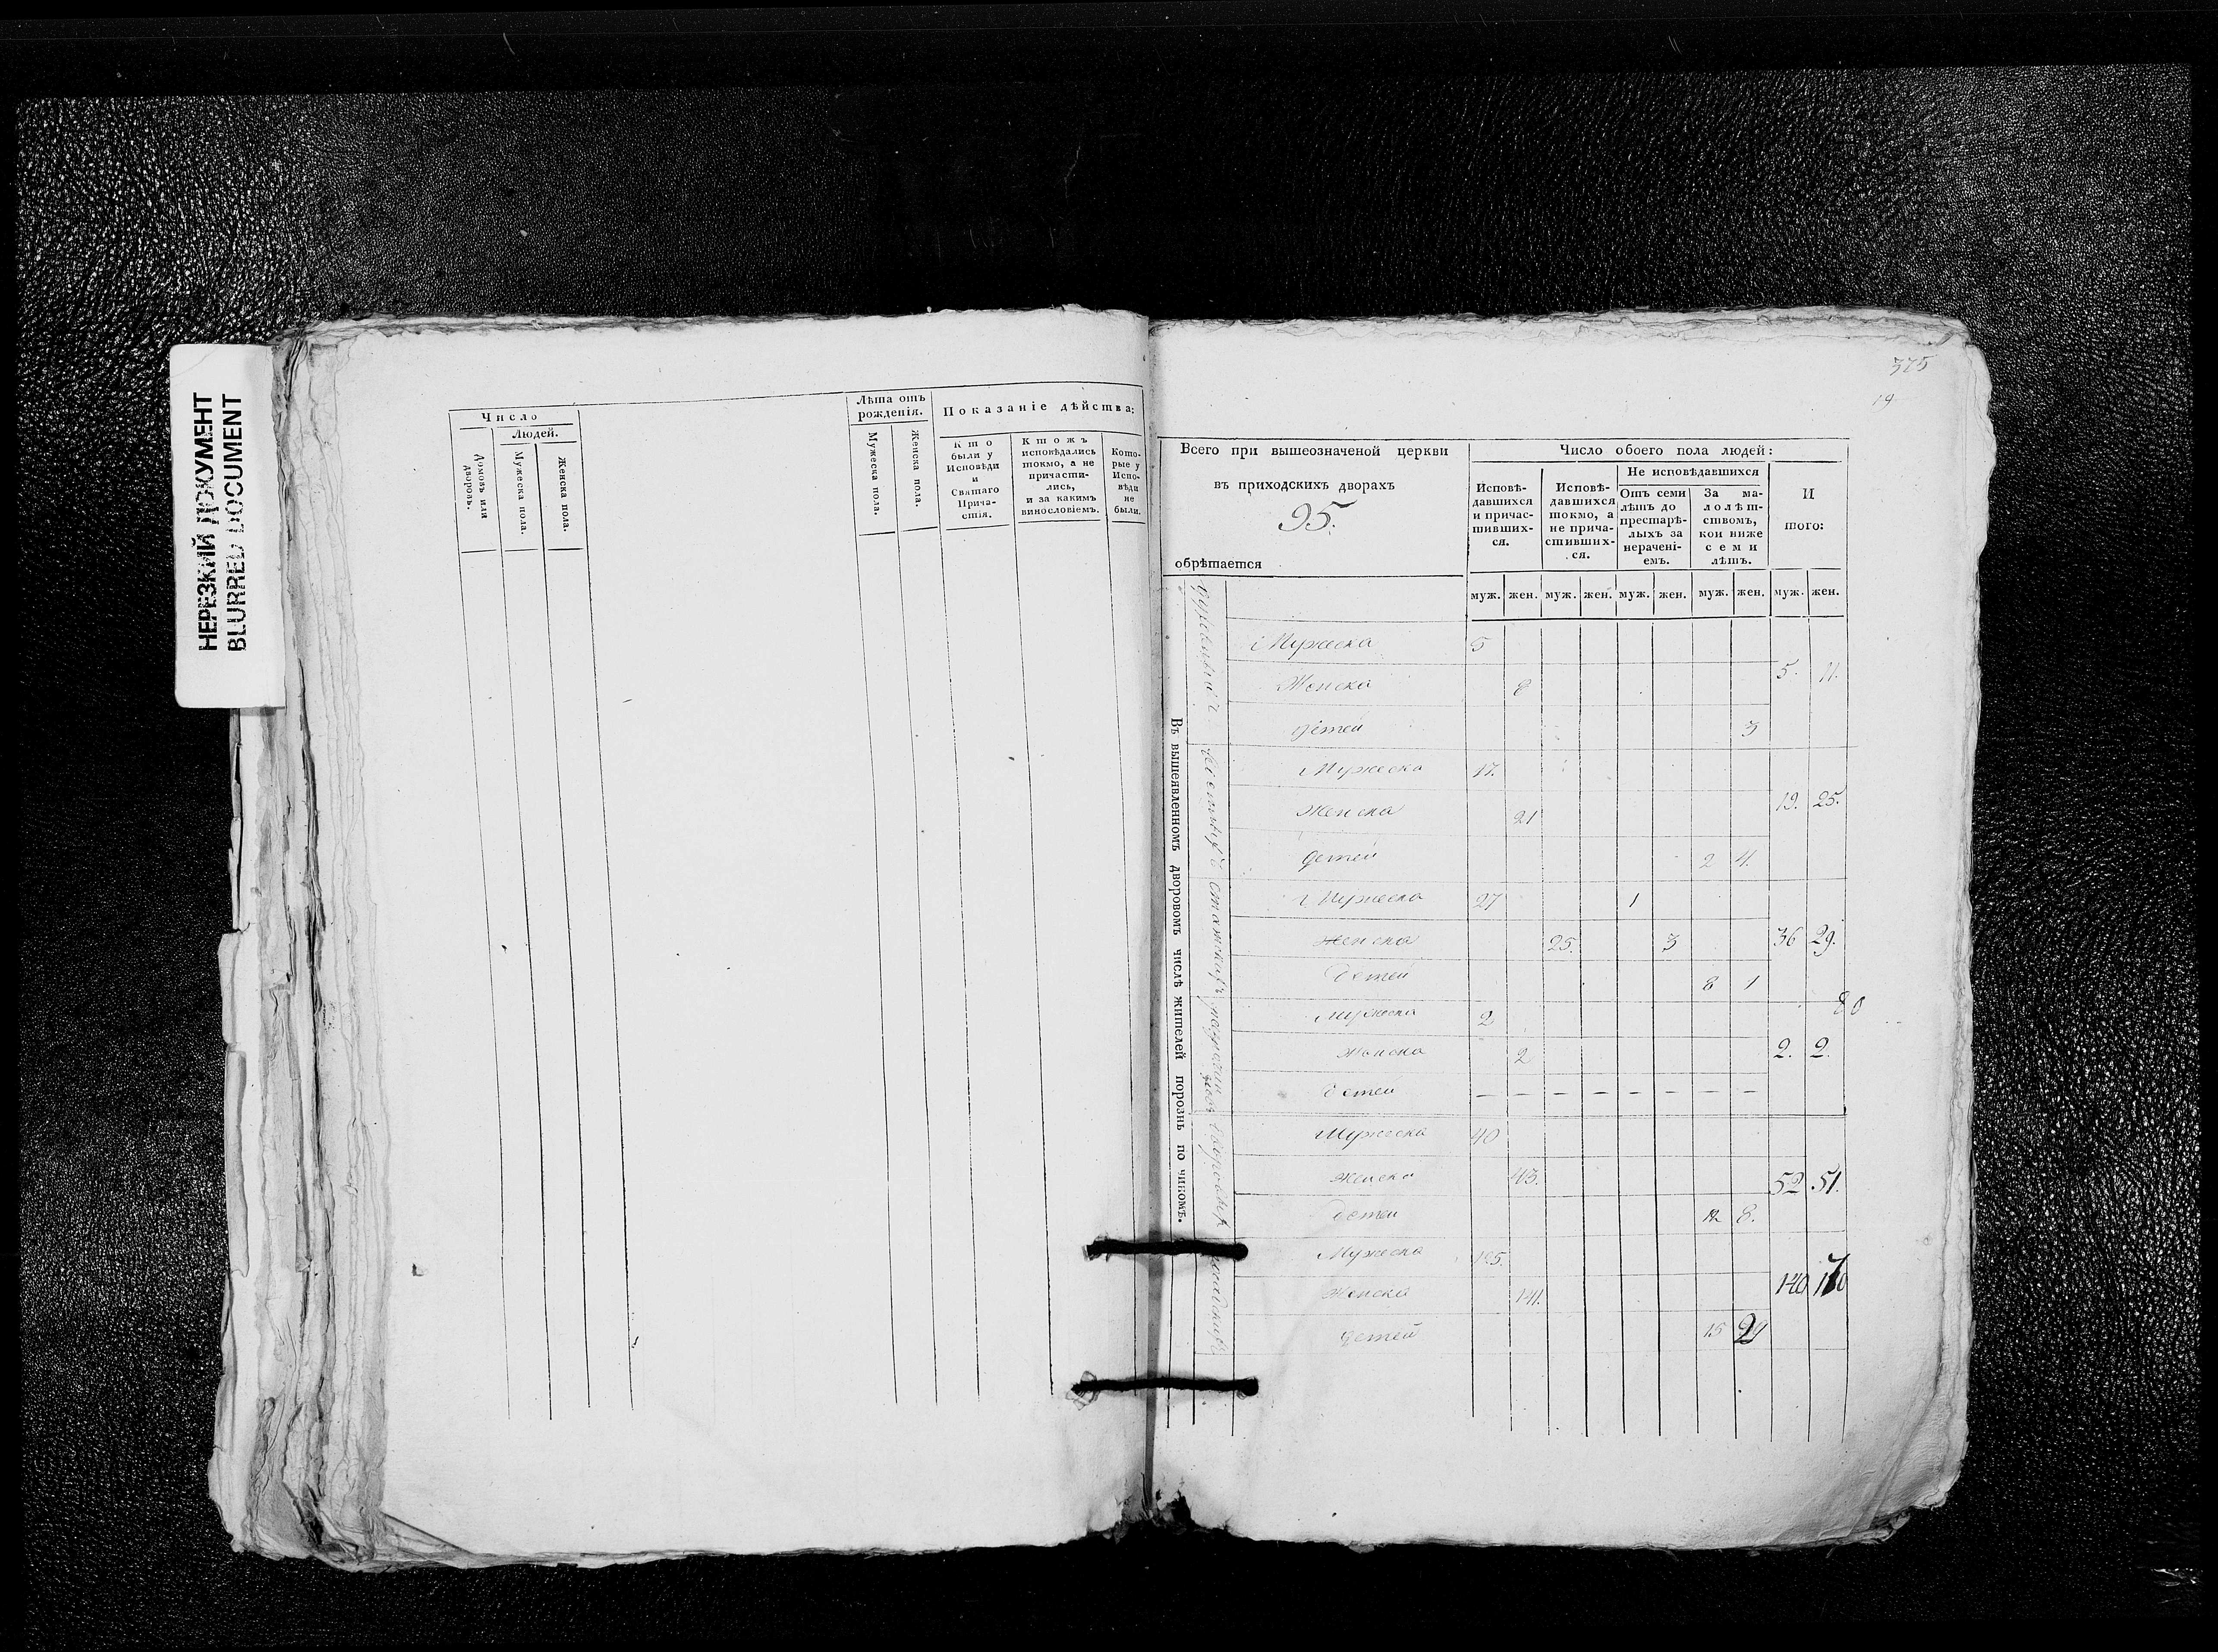 НЕРЕЗКИЙ ДОКУМЕНТ
BLURRED DOCUMENT
Число
Людей.
Домовъ или дворовъ.
Мужеска пола.
Женска пола.
Лѣта отъ рожденія.
Мужеска пола.
Женска пола.
Показаніе дѣйства:
Кто были у Исповѣди и Святаго Причастія.
Ктожъ исповѣдались токмо, а не причастились, и за какимъ винословіемъ.
Которые у Исповѣди не были.
375
19
Всего при вышеозначеной церкви
въ приходскихъ дворахъ
95.
обрѣтается
Число обоего пола людей:
Исповѣдавшихся и причастившихся.
Исповѣдавшихся токмо, а не причастившихся.
Не исповѣдавшихся
Отъ семи лѣтъ до престарѣлыхъ за нераченіемъ.
За малолѣтствомъ, кои ниже семи лѣтъ.
И того:
муж. жен. муж. жен. муж. жен. муж. жен. муж. жен.
Въ вышеявленномъ дворовомъ числѣ жителей порознь по чиномъ.
Мужеска 5
Женска 8 5. 11.
детей 3
Мужеска 17.
Женска 21 19. 25.
детей 2 4.
Мужеска 27 1
Женска 25. 3 36 29.
детей 8 1
80
Мужеска 2
Женска 2 2. 2.
детей — — — — — — — —
Мужеска 40
Женска 43. 52 51.
детей 12 8.
Мужеска 125.
Женска 141. 140 170
детей 15 29